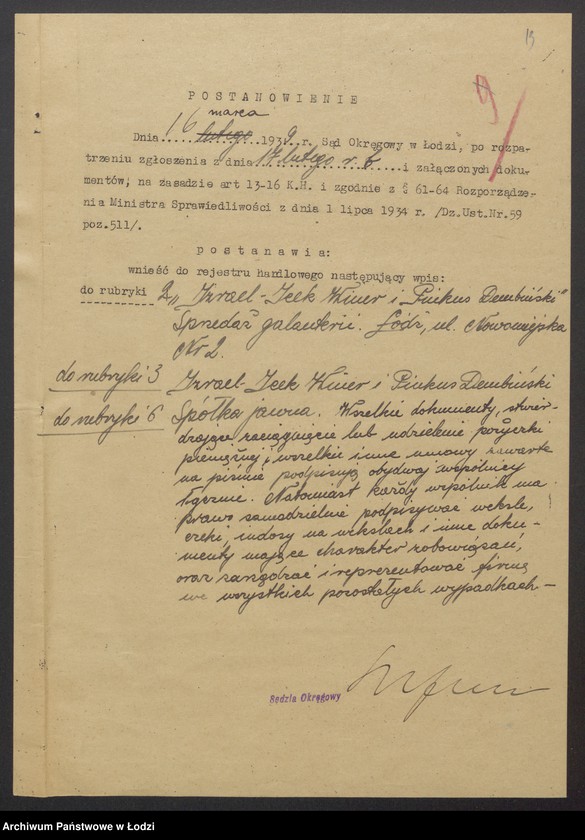 13
9
POSTANOWIENIE
marca
Dnia 16 lutego 1939 r. Sąd Okręgowy w Łodzi, po rozpa-
trzeniu zgłoszenia z dnia 17 lutego r.b. i załączonych doku-
mentów, na zasadzie art 13-16 K.H. i zgodnie z § 61-64 Rozporządze-
nia Ministra Sprawiedliwości z dnia 1 lipca 1934 r. /Dz.Ust.Nr.59
poz.511/.
postanawia:
wnieść do rejestru handlowego następujący wpis:
do rubryki 2 „Izrael-Icek Winer i Pinkus Dembiński"
Sprzedaż galanterii. Łódź, ul. Nowomiejska
Nr 2.
do rubryki 3 Izrael-Icek Winer i Pinkus Dembiński
do rubryki 6 Spółka jawna. Wszelkie dokumenty, stwier-
dzające zaciągnięcie lub udzielenie pożyczki
pieniężnej i wszelkie inne umowy zawarte
na piśmie podpisują obydwaj wspólnicy
łącznie. Natomiast każdy wspólnik ma
prawo samodzielnie podpisywać weksle,
czeki, indosy na wekslach i inne doku-
menty mające charakter zobowiązań,
oraz zarządzać i reprezentować firmę
we wszystkich pozostałych wypadkach –
Sędzia Okręgowy
Archiwum Państwowe w Łodzi